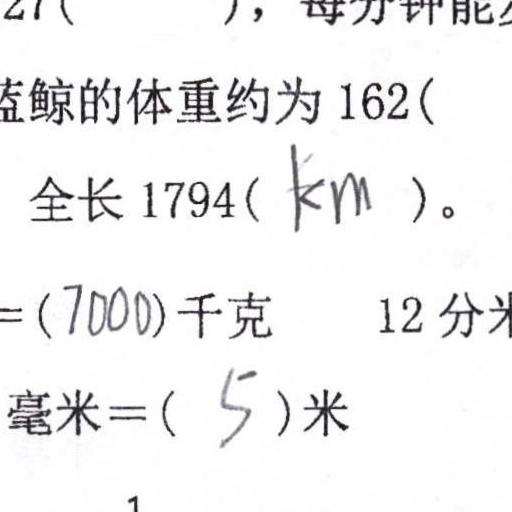 27( ),每分钟能
蓝鲸的体重约为 162(
全长 1794( km )。
=(7000)千克 12 分米
毫米=( 5 )米
1